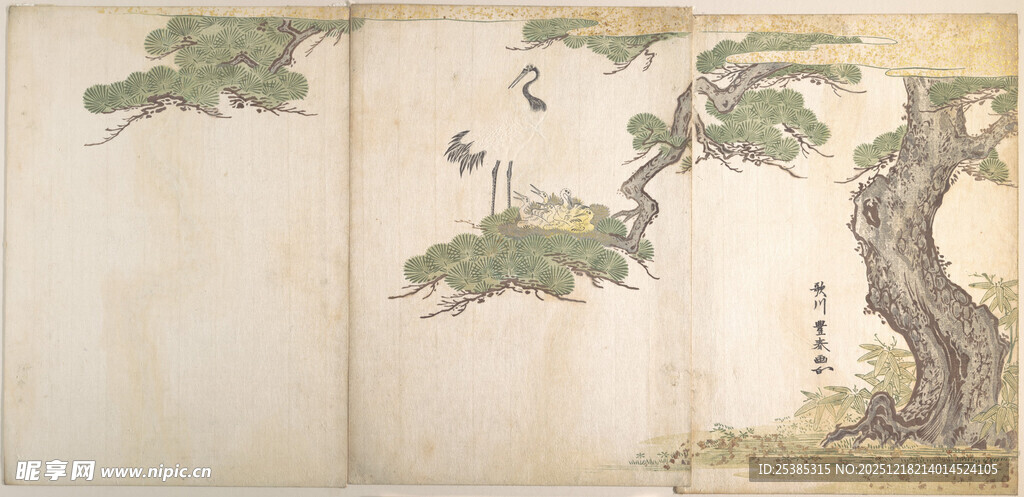 歌川豊春画
昵享网 www.nipic.cn
ID:25385315 NO:20251218214014524105